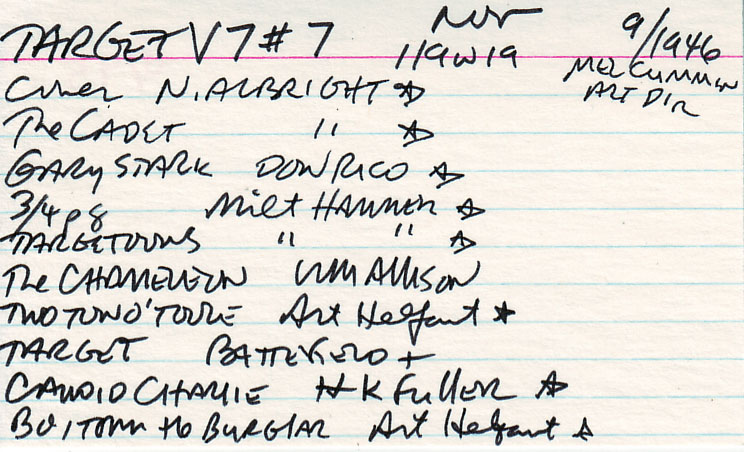 TARGET V7 #7 Nov 9/1946
119W19 MEL CUMMIN
ART DIR
Cover N. ALBRIGHT ☆
The CADET " ☆
GARY STARK DON RICO ☆
3/4 pg Milt HAMMER ☆
TARGETOONS " " ☆
The CHAMELEON Wm ALLISON
TWO TON O'TOOLE Art Helfant ★
TARGET BATTEFIELD +
CANDID CHARLIE H K Fuller ☆
the BURGLAR Art Helfant ☆